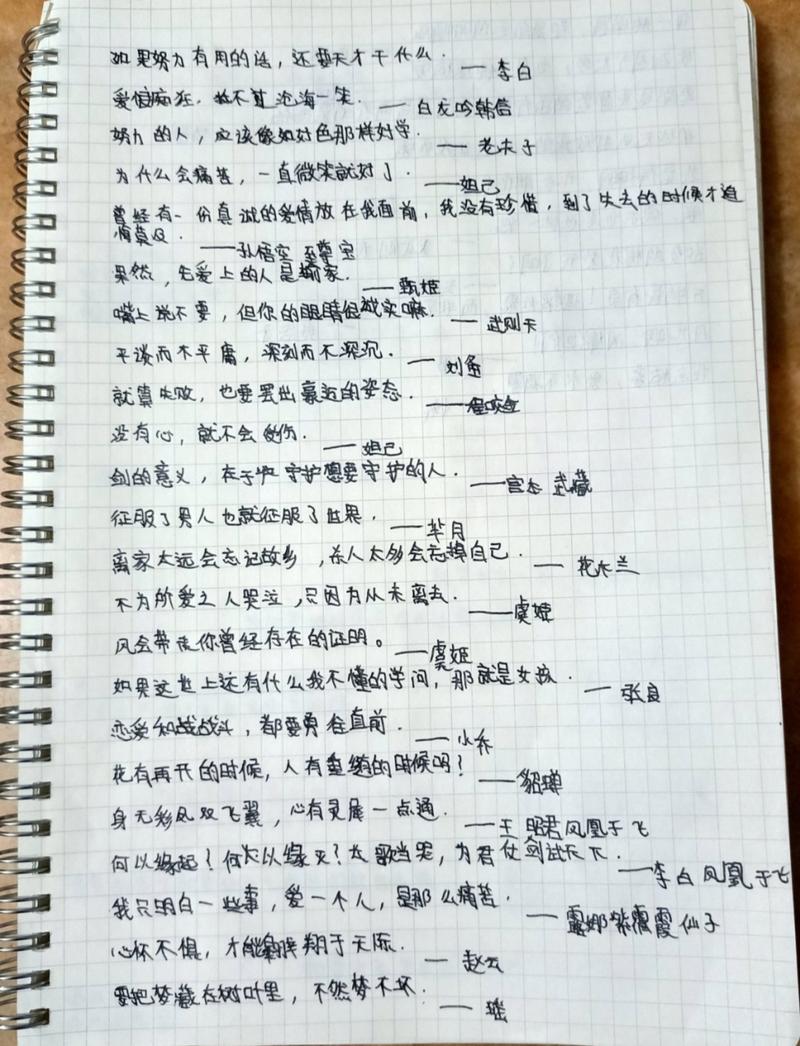 如果努力有用的话，还要天才干什么．——李白
爱恨痴狂，敌不算沧海一笑．——白龙吟韩信
努力的人，应该像如好色那样好学．——老夫子
为什么会痛苦，一直微笑就好了．——妲己
曾经有一份真诚的爱情放在我面前，我没有珍惜，到了失去的时候才追
悔莫及．——孙悟空 至尊宝
果然，先爱上的人是输家．——甄姬
嘴上说不要，但你的眼睛很诚实嘛．——武则天
平淡而不平庸，深刻而不深沉．——刘备
就算失败，也要摆出豪迈的姿态．——程咬金
没有心，就不会受伤．——妲己
剑的意义，在于守护想要守护的人．——宫本 武藏
征服了男人也就征服了世界．——芈月
离家太远会忘记故乡，杀人太多会忘掉自己．——花木兰
不为所爱之人哭泣，只因为从未离去．——虞姬
风会带走你曾经存在的证明。——虞姬
如果这世上还有什么我不懂的学问，那就是女孩．——张良
恋爱和战战斗，都要勇往直前．——小乔
花有再开的时候，人有重逢的时候吗？——貂蝉
身无彩凤双飞翼，心有灵犀一点通．——王昭君凤凰于飞
何以缘起？何以缘灭？长歌当哭，为君仗剑试天下．——李白 凤凰于飞
我只明白一些事，爱一个人，是那么痛苦．——露娜紫霞仙子
心怀不惧，才能翱翔于天际．——赵云
要把梦藏在树叶里，不然梦不坏．——瑶